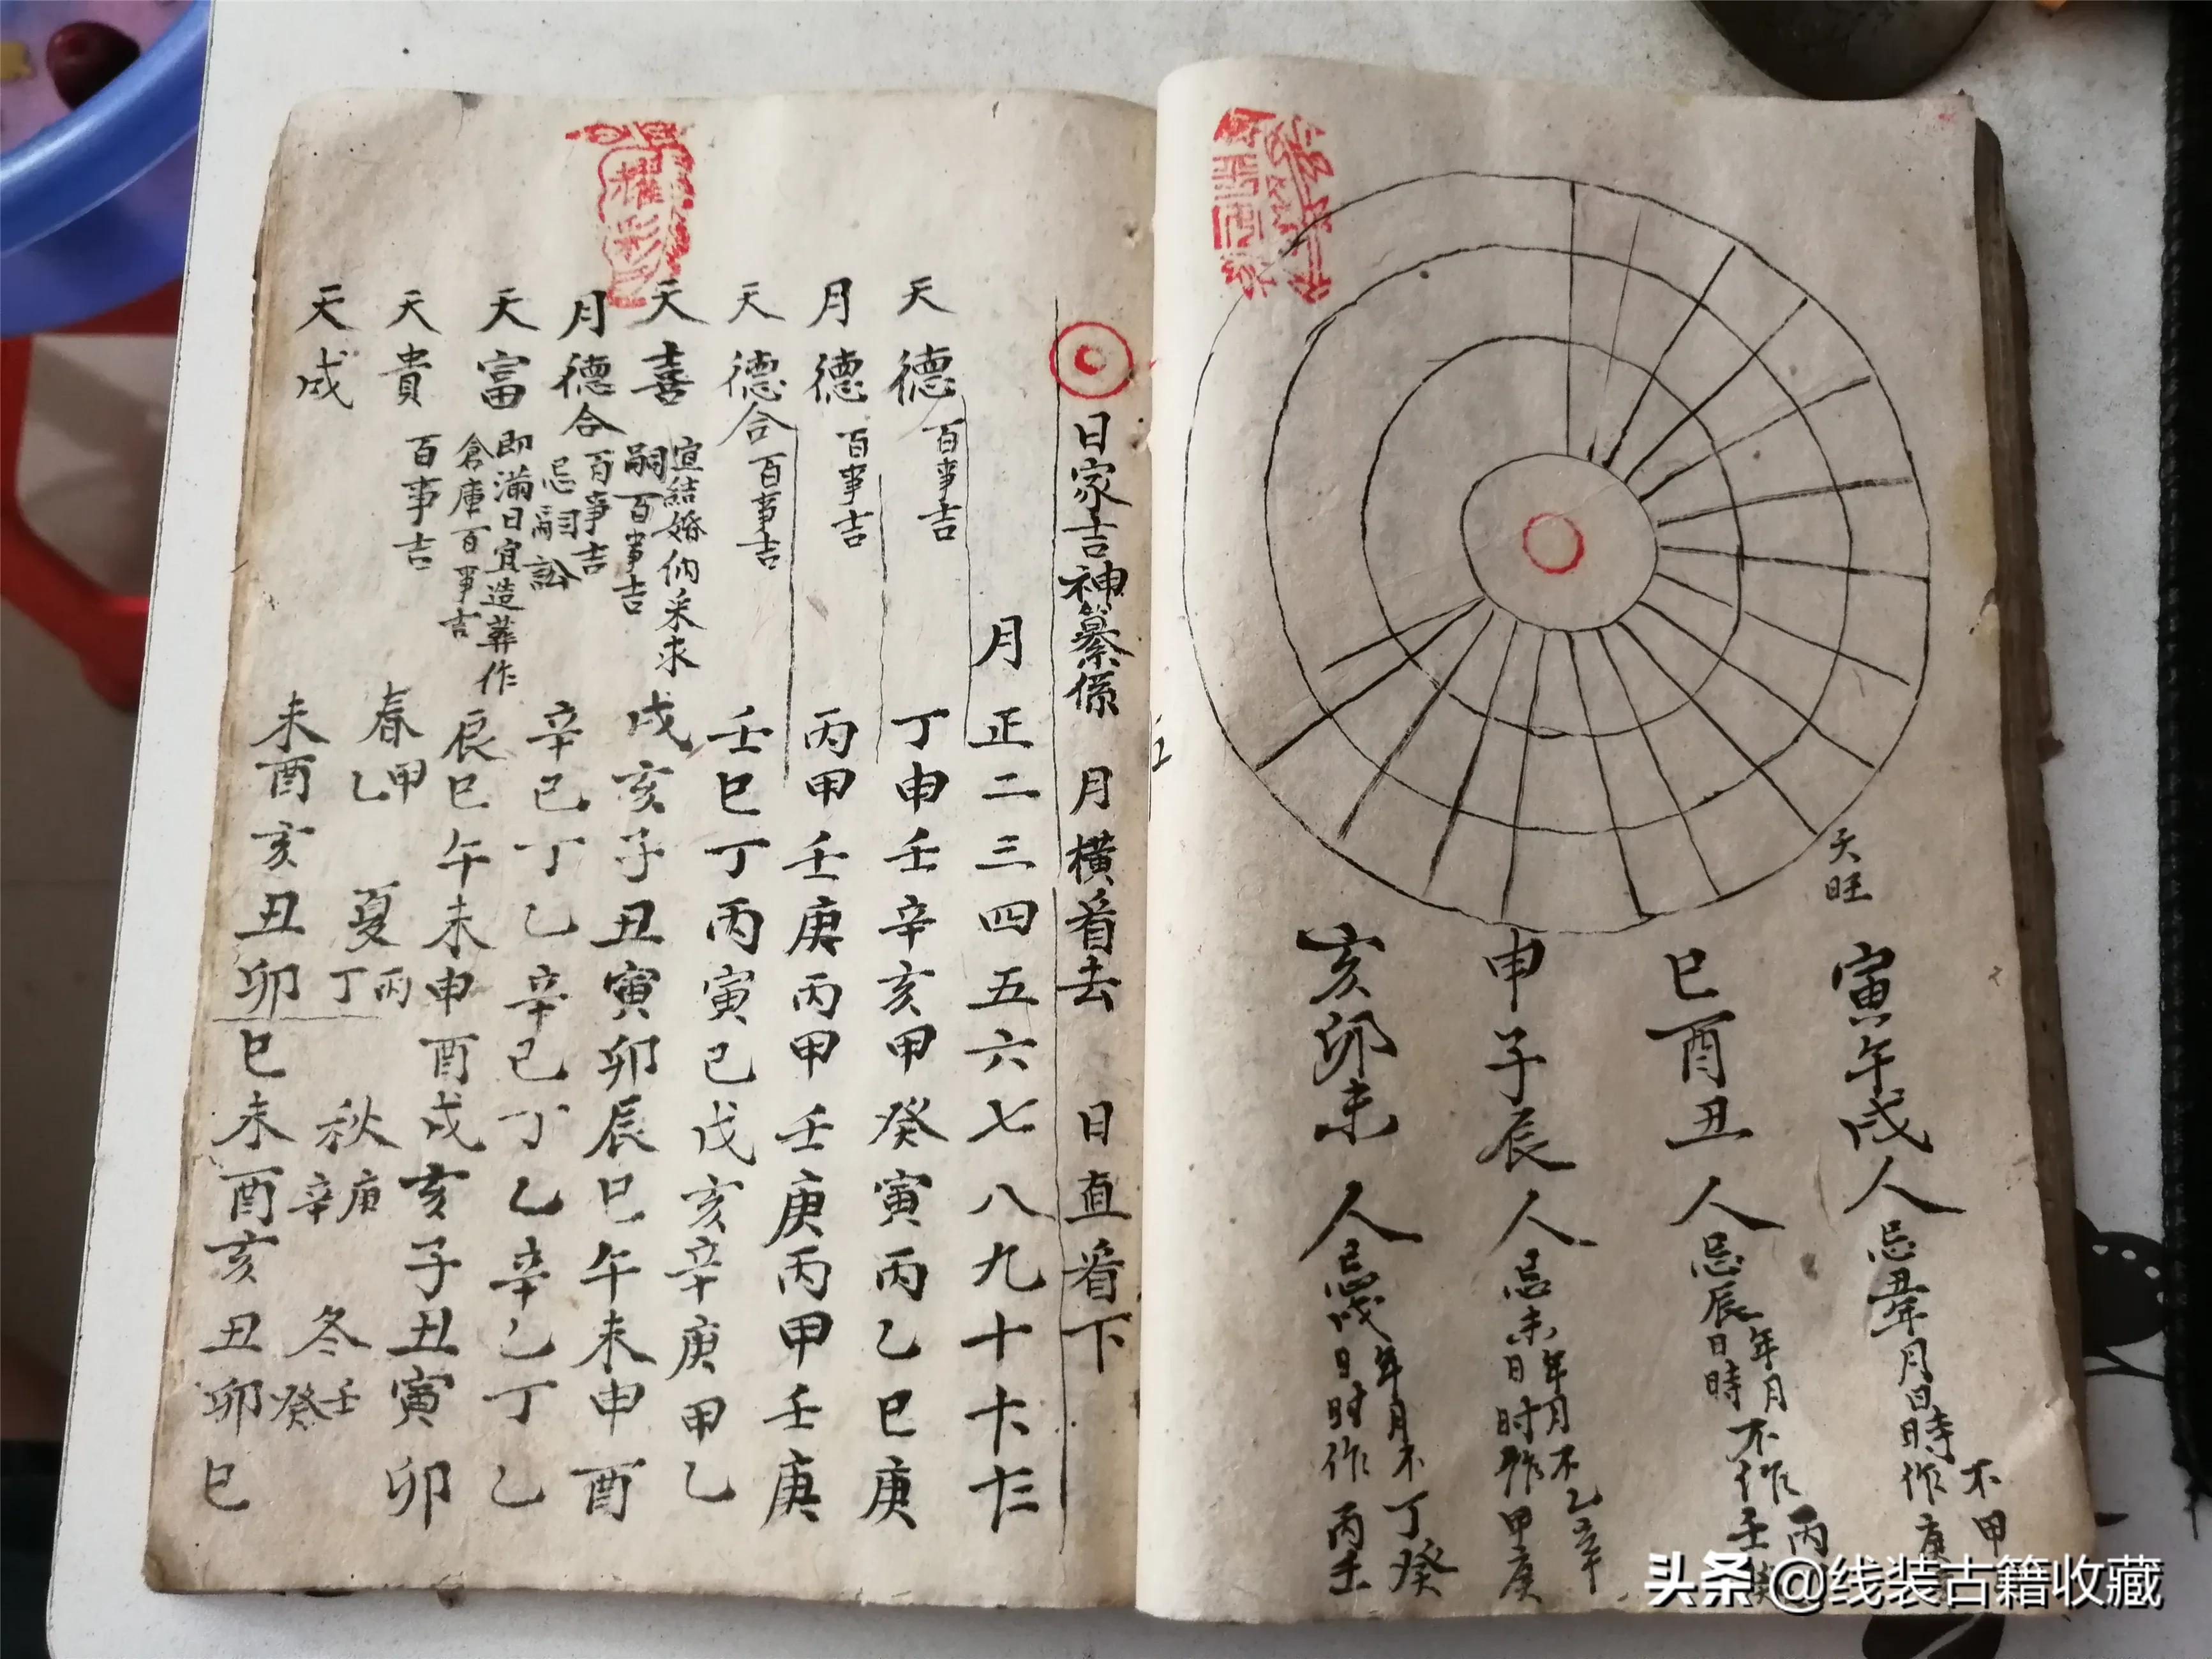 天旺
寅午戌人忌丑年月日時不作甲庚
巳酉丑人忌辰年月日時不作丙壬
申子辰人忌未年月日时不作乙辛甲庚
亥卯未人忌戌年月日时不作丁癸丙壬
日家吉神纂係 月橫看去 日直看下
月正二三四五六七八九十十一十二
天德百事吉丁申壬辛亥甲癸寅丙乙巳庚
月德百事吉丙甲壬庚丙甲壬庚丙甲壬庚
天德合百事吉壬巳丁丙寅己戊亥辛庚甲乙
天喜宣結婚納采求嗣百事吉戌亥子丑寅卯辰巳午未申酉
月德合百事吉忌嗣訟辛己丁乙辛己丁乙辛乙丁乙
天富即滿日宜造葬作倉庫百事吉辰巳午未申酉戌亥子丑寅卯
天貴百事吉春甲乙夏丙丁秋庚辛冬壬癸
天成未酉亥丑卯巳未酉亥丑卯巳
耀彩
头条 @线装古籍收藏